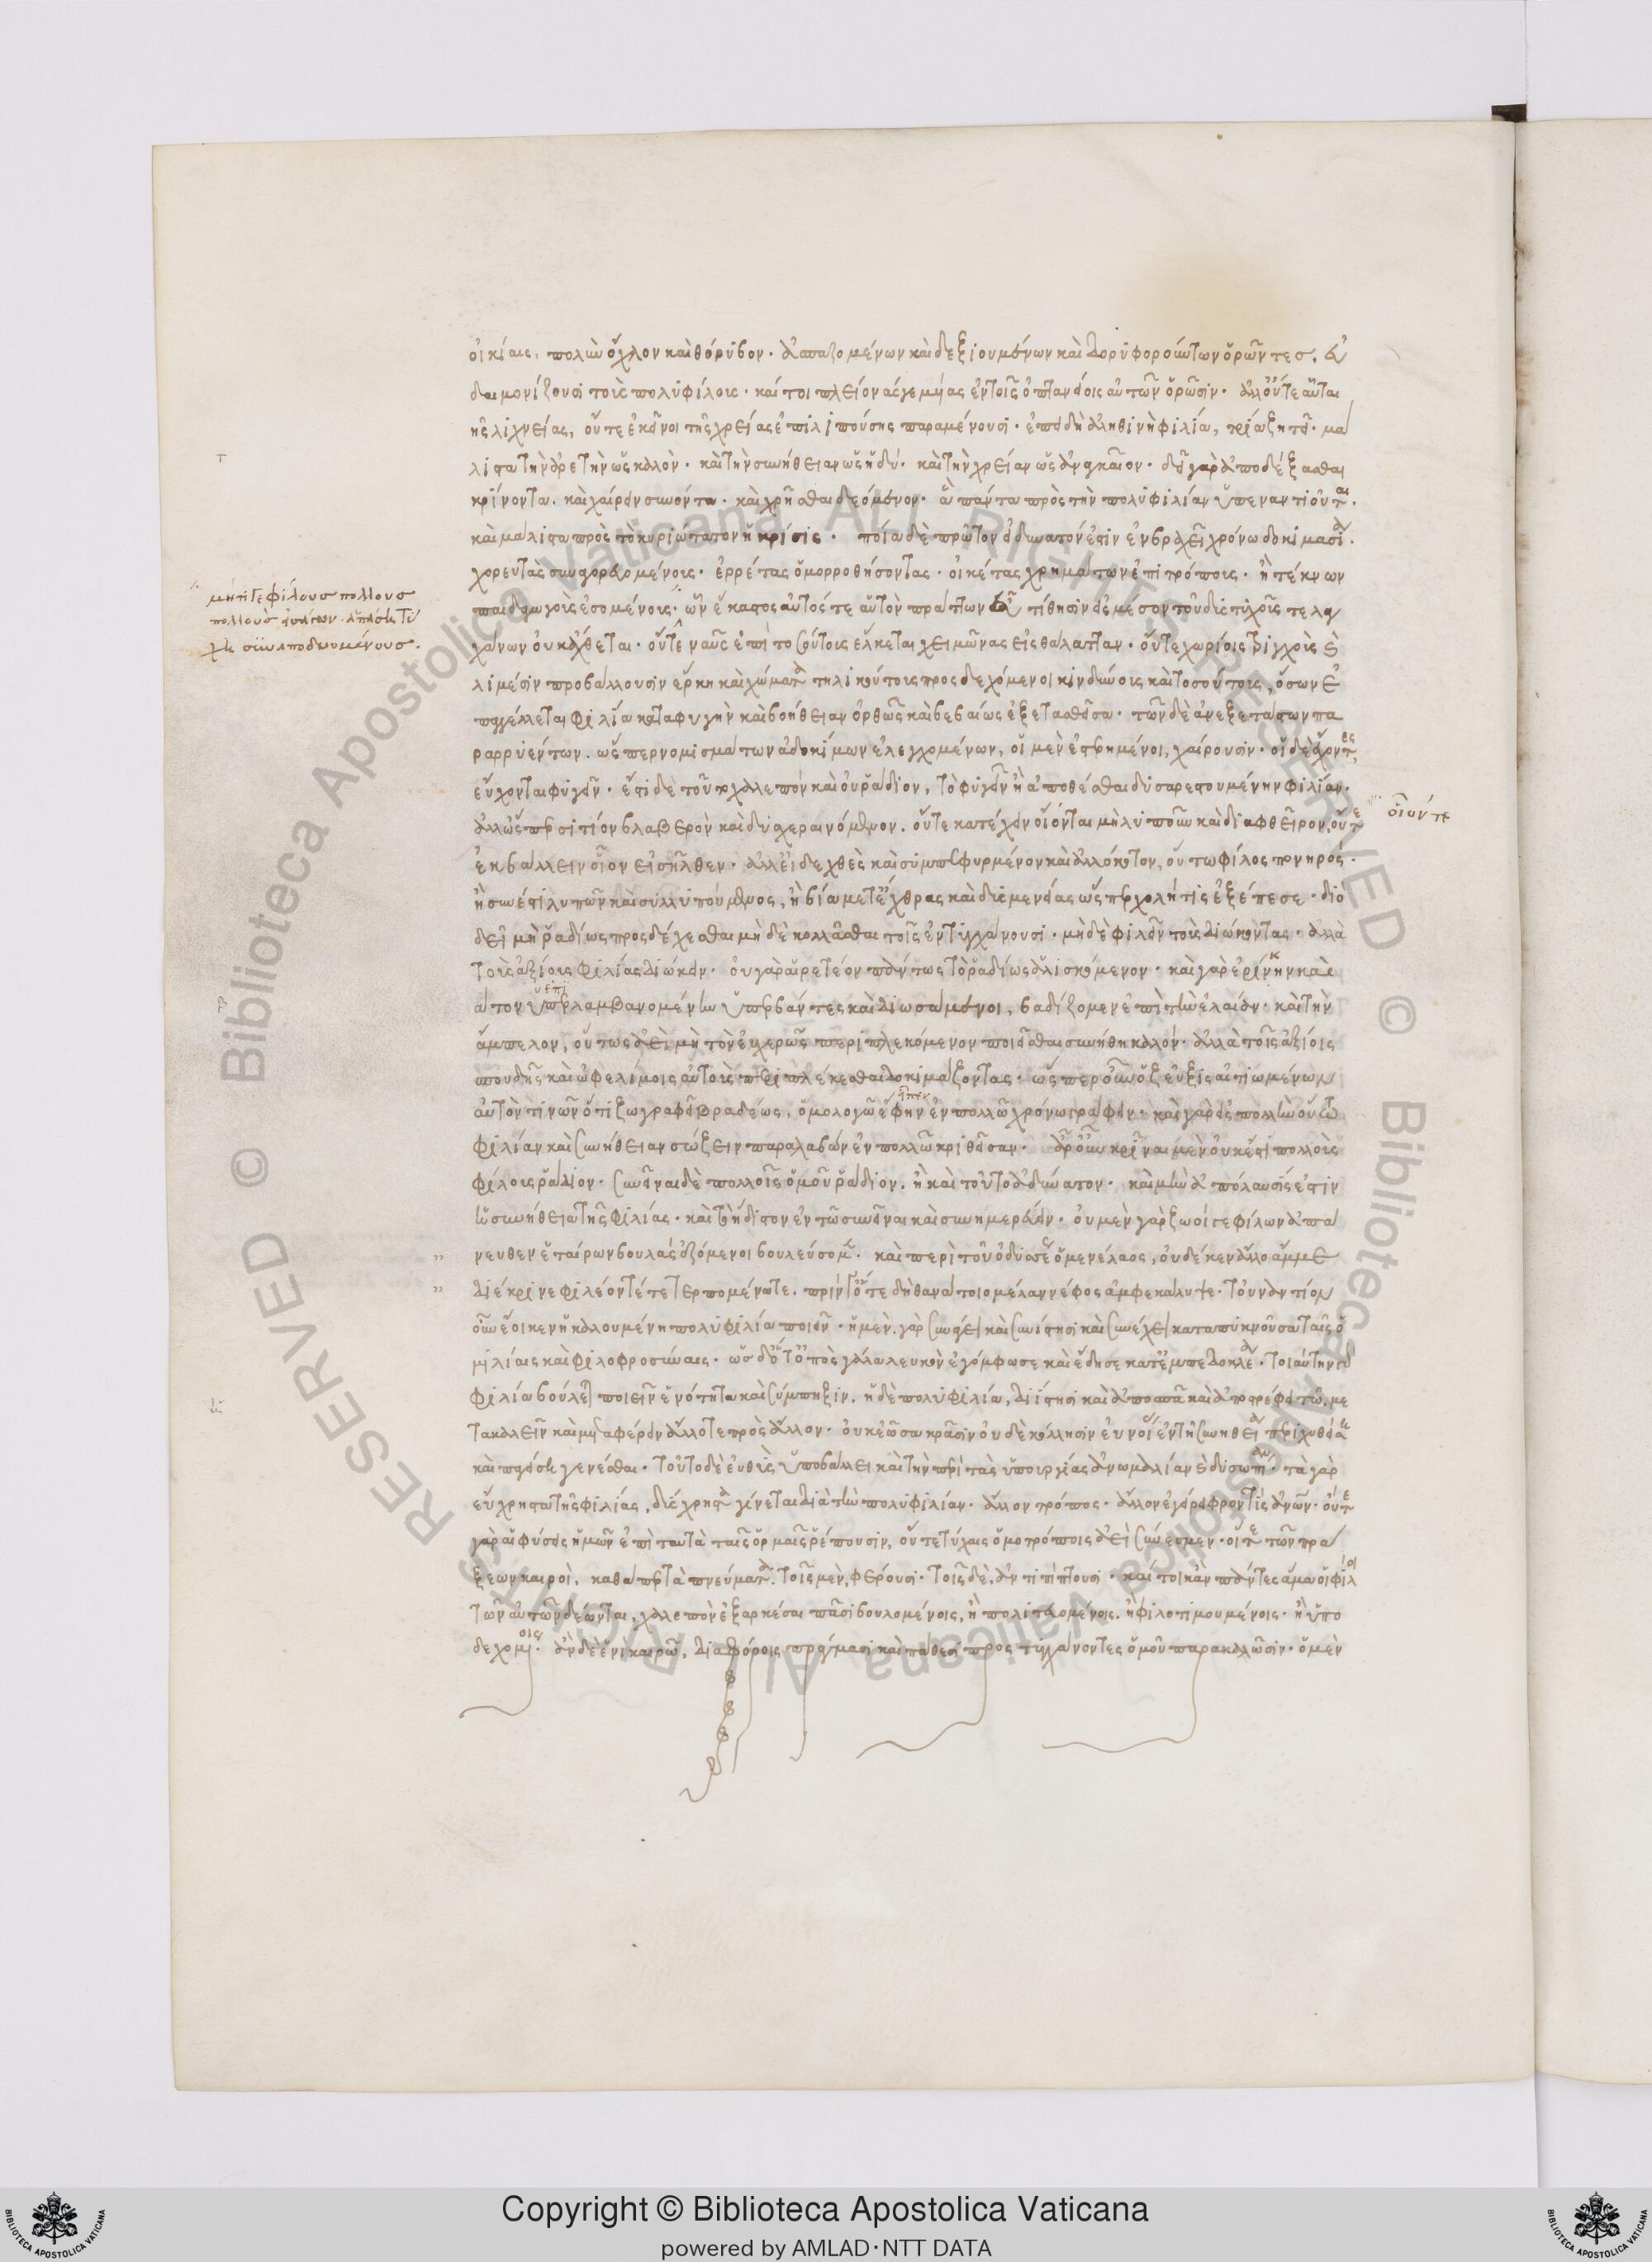 οἰκίαις, πολὺν ὄχλον καὶ θόρυβον. ἀσπαζομένων καὶ δεξιουμένων καὶ δορυφορούντων ὁρῶντες. εὐ
δαιμονίζουσι τοὺς πολυφίλους. καίτοι πλείονάς γε μυίας ἐν τοῖς ὀπτανείοις αὐτῶν ὁρῶσιν. ἀλλ' οὔτε αὗται
τῆς λιχνείας, οὔτε ἐκεῖνοι τῆς χρείας ἐπιλιπούσης παραμένουσι. ἐπεὶ δὴ ἀληθινὴ φιλία, τρία ζητεῖ. μά
λιστα τὴν ἀρετὴν ὡς καλὸν. καὶ τὴν συνήθειαν ὡς ἡδύ. καὶ τὴν χρείαν ὡς ἀναγκαῖον. δεῖ γὰρ ἀποδέξασθαι
κρίνοντα. καὶ χαίρειν συνόντα. καὶ χρῆσθαι δεόμενον. ἃ πάντα πρὸς τὴν πολυφιλίαν ὑπεναντιοῦται.
καὶ μάλιστα πρὸς τὸ κυριώτατον ἡ κρίσις. ποία δὲ πρῶτον εἰ δυνατόν ἐστιν ἐν βραχεῖ χρόνω δοκιμάσαι.
χορευτὰς συγχορευομένους. ἐρρέτας ὁμορροθήσοντας. οἰκέτας χρημάτων ἐπιτρόπους. ἢ τέκνων
παιδαγωγοὺς ἐσομένους. ὧν ἕκαστος αὐτός τε αὑτὸν πράττων εὖ τίθησιν εἰς μέσον τοῦ δυστυχοῦς τε λαγ
χάνων οὐκ ἄχθεται. οὔτε ναῦς ἐπὶ τοσούτους ἕλκεται χειμῶνας εἰς θάλατταν. οὔτε χωρίοις τριγχοὺς καὶ
λιμέσιν προβάλλουσιν ἕρκη καὶ χώματα τηλικούτους προσδεχόμενοι κινδύνους καὶ τοσούτους, ὅσων ἐ
παγγέλλεται φιλία καταφυγὴν καὶ βοήθειαν ὀρθῶς καὶ βεβαίως ἐξετασθεῖσα. τῶν δὲ ἀνεξετάστων πα
ραρρυέντων. ὥσπερ νομισμάτων ἀδοκίμων ἐλεγχομένων, οἱ μὲν ἐστρημένοι, χαίρουσιν. οἱ δὲ ἔχοντες
εὔχονται φυγεῖν. ἔστι δὲ τοῦτο χαλεπὸν καὶ οὐ ῥάδιον, τὸ φυγεῖν ἢ ἀποθέσθαι δυσαρεστουμένην φιλίαν.
ἀλλ' ὥσπερ σιτίον βλαβερὸν καὶ δυσχεραινόμενον. οὔτε κατέχειν οἴονται μὴ λυποῦν καὶ διαφθεῖρον, οὔτε
οἷόν τε
ἐκβάλλειν οἷον εἰσῆλθεν. ἀλλ' εἰδεχθὲς καὶ συμπεφυρμένον καὶ ἀλλόκοτον, οὕτω φίλος πονηρός.
ἢ σύνεστι λυπῶν καὶ συλλυπούμενος, ἢ βία μετ' ἔχθρας καὶ δυσμενείας ὥσπερ χολή τις ἐξέπεσε. διὸ
δεῖ μὴ ῥαδίως προσδέχεσθαι μηδὲ κολλᾶσθαι τοῖς ἐντυγχάνουσι. μηδὲ φιλεῖν τοὺς διώκοντας. ἀλλὰ
τοὺς ἀξίους φιλίας διώκειν. οὐ γὰρ αἱρετέον πάντως τὸ ῥαδίως ἁλισκόμενον. καὶ γὰρ ἐρίνην καὶ
βάτον ὑπεριλαμβανομένην ὑπερβάντες καὶ διωσάμενοι, βαδίζομεν ἐπὶ τὴν ἐλαίαν. καὶ τὴν
ἄμπελον, οὕτως ἀεὶ μὴ τὸν εὐχερῶς περιπλεκόμενον ποιεῖσθαι συνήθη καλόν. ἀλλὰ τοῖς ἀξίοις
σπουδῆς καὶ ὠφελίμοις αὐτοὺς περιπλέκεσθαι δοκιμάζοντας. ὥσπερ οὖν ὁ ζεῦξις αἰτιωμένων
αὐτόν τινων ὅτι ζωγραφεῖ βραδέως, ὁμολογῶ ἔφην ἐν πολλῶ χρόνω γράφειν. καὶ γὰρ εἰς πολὺν οὕτω
φιλίαν καὶ συνήθειαν σώζειν παραλαβών ἐν πολλῶ κριθεῖσαν. ἆρ' οὖν κρῖναι μὲν οὐκ ἔστι πολλοὺς
φίλους ῥάδιον. συνεῖναι δὲ πολλοῖς ὁμοῦ ῥάδιον. ἢ καὶ τοῦτο ἀδύνατον. καὶ μὴν ἀπόλαυσίς ἐστιν
ἡ συνήθεια τῆς φιλίας. καὶ τὸ ἥδιστον ἐν τῶ συνεῖναι καὶ συνημερεύειν. οὐ μὲν γὰρ ζωοί γε φίλων ἀπά
νευθεν ἑταίρων βουλὰς ἑζόμενοι βουλεύσομεν. καὶ περὶ τοῦ ὀδυσσέως ὁ μενέλαος, οὐδέ κεν ἄλλο ἄμμε
διέκρινε φιλέοντέ τε τερπομένω τε. πρίν γ' ὅτε δὴ θανάτοιο μέλαν νέφος ἀμφεκάλυψε. τοὐναντίον
οὖν ἔοικεν ἡ καλουμένη πολυφιλία ποιεῖν. ἡ μὲν γὰρ συνάγει καὶ συνίστησι καὶ συνέχει καταπυκνοῦσα ταῖς ὁ
μιλίαις καὶ φιλοφροσύναις. ὡς δ' ὅτ' ὀπὸς γάλα λευκὸν ἐγόμφωσε καὶ ἔδησε κατ' ἐμπεδοκλέα. τοιαύτην γὰρ
φιλία βούλεται ποιεῖν ἑνότητα καὶ σύμπηξιν. ἡ δὲ πολυφιλία, διίστησι καὶ ἀποσπᾶ καὶ ἀποστρέφει τῶ με
τακαλεῖν καὶ μεταφέρειν ἄλλοτε πρὸς ἄλλον. οὐκ ἐῶσα κρᾶσιν οὐδὲ κόλλησιν εὐνοίας ἐν τῇ συνηθείᾳ περιχυθείσῃ
καὶ παγείσῃ γενέσθαι. τοῦτο δὲ εὐθὺς ὑποβάλλει καὶ τὴν περὶ τὰς ὑπουργίας ἀνωμαλίαν καὶ δυσωπίαν. τὰ γὰρ
εὔχρηστα τῆς φιλίας, δύσχρηστα γίνεται διὰ τὴν πολυφιλίαν. ἄλλον τρόπος. ἄλλον ἐγείρει φροντὶς ἀνῶν. οὔτε
γὰρ αἱ φύσεις ἡμῶν ἐπὶ ταυτὰ ταῖς ὁρμαῖς ῥέπουσιν, οὔτε τύχαις ὁμοτρόποις ἀεὶ σύνεσμεν. οἵτε τῶν πρά
ξεων καιροὶ. καθάπερ τὰ πνεύματα. τοῖς μὲν, φέρουσι. τοῖς δὲ, ἀντιπίπτουσι. καίτοι κἂν πάντες ἅμα οἱ φίλοι
τῶν αὐτῶν δέωνται, χαλεπὸν ἐξαρκέσαι πᾶσι βουλομένοις, ἢ πολιτευομένοις. ἢ φιλοτιμουμένοις. ἢ ὑπο
δεχομένοις. ἂν δὲ ἑνὶ καιρῶ, διαφόροις πράγμασι καὶ πάθεσι προστυγχάνοντες ὁμοῦ παρακαλῶσιν. ὁ μὲν
μήτι γε φίλους πολλοὺς
Copyright © Biblioteca Apostolica Vaticana
powered by AMLAD·NTT DATA